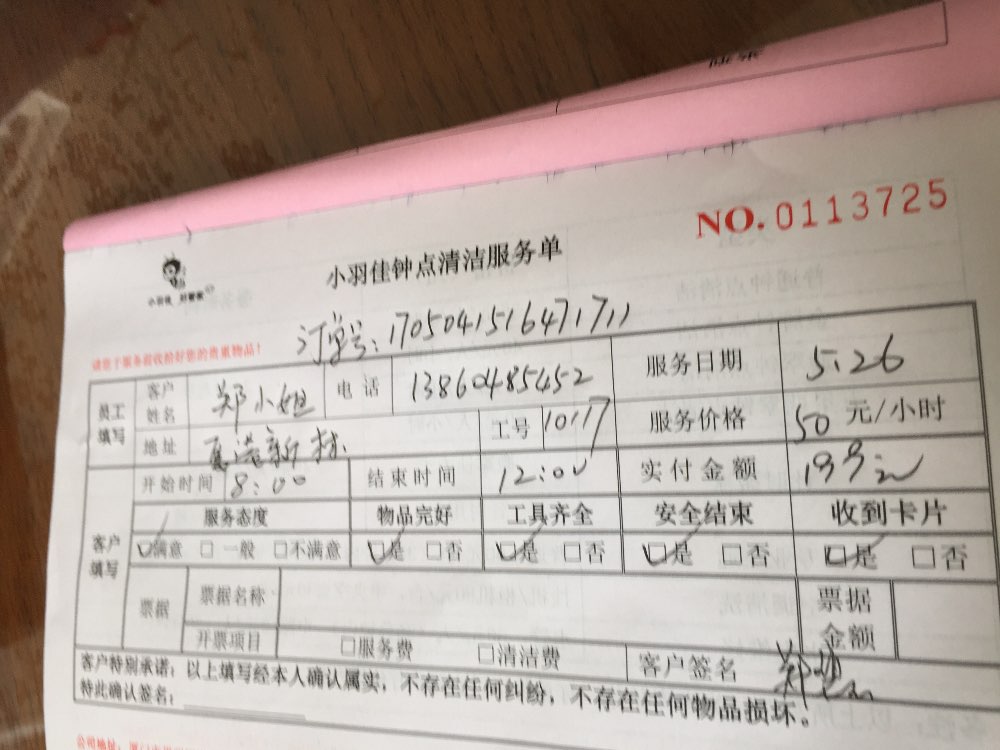 NO. 0113725
小羽佳钟点清洁服务单
小羽佳 好管家
订单号:1705041516471711
请您于服务前收拾好您的贵重物品!
员工填写 客户姓名 郑小姐 电话 13860485452 服务日期 5.26
地址 工号 10117 服务价格 50 元/小时
客户填写 开始时间 8:00 结束时间 12:00 实付金额 199元
服务态度 物品完好 工具齐全 安全结束 收到卡片
☑满意 □一般 □不满意 ☑是 □否 ☑是 □否 ☑是 □否 ☑是 □否
票据 票据名称 票据金额
开票项目 □服务费 □清洁费 客户签名 郑
客户特别承诺:以上填写经本人确认属实,不存在任何纠纷,不存在任何物品损坏。
特此确认签名:
公司地址: